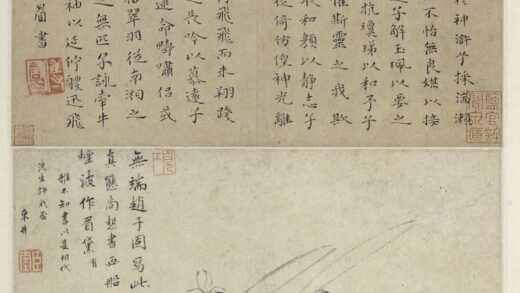 於神滸兮採湍瀨
不怡無良媒以接
子解玉佩以要之
抗瓊珶以和予兮
懼斯靈之我欺
收和顏以靜志兮
徙倚彷徨神光離
飛而未翔踐
長吟以慕遠兮
命疇嘯侶或
拾翠羽從南湘之
無匹兮詠牽牛
袖以延佇體迅飛
眉書
無端趙子固寫此
真態尚想書画船
煙波作眉黛
雅不知書以是相代
先生許我否
東井